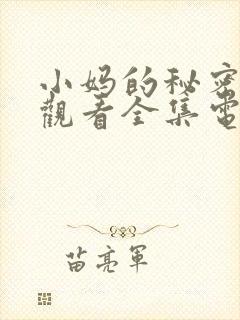 小妈的秘密
觀看全集電
苗亮軍